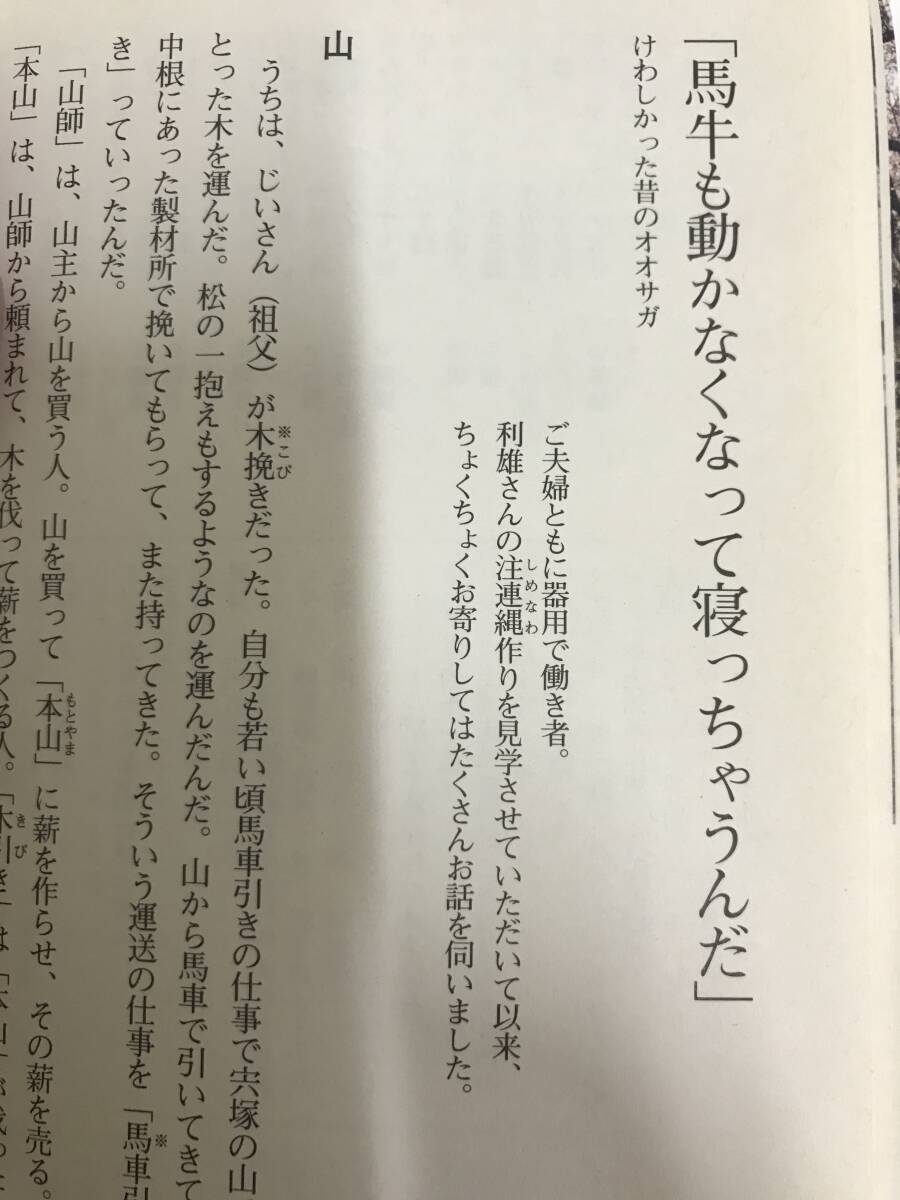 「馬牛も動かなくなって寝っちゃうんだ」
けわしかった昔のオオサガ
ご夫婦ともに器用で働き者。
利雄さんの注連縄作りを見学させていただいて以来、
しめなわ
ちょくちょくお寄りしてはたくさんお話を伺いました。
山
うちは、じいさん（祖父）が木挽きだった。自分も若い頃馬車引きの仕事で宍塚の山
※こび
とった木を運んだ。松の一抱えもするようなのを運んだんだ。山から馬車で引いてきて
中根にあった製材所で挽いてもらって、また持ってきた。そういう運送の仕事を「馬車引
※
き」っていったんだ。
「山師」は、山主から山を買う人。山を買って「本山」に薪を作らせ、その薪を売る。
もとやま
「本山」は、山師から頼まれて、木を伐って薪をつくる人。「木引き」は「本山」が
きび